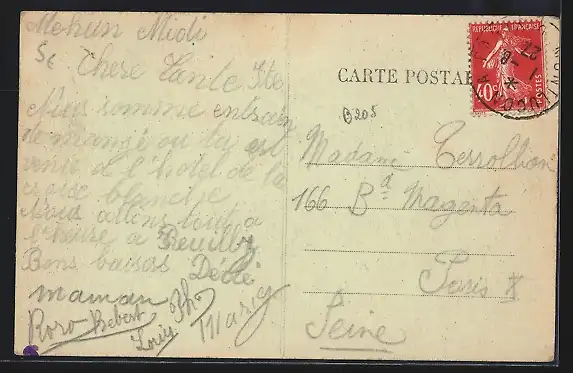 Mehun Midi
Chere Tante
Nous somme entrain
de mangé ou tu est
venie de l'hotel de la
croise blanche
Nous allons tout a
l'heure a Reuilly
Bons baisers Dédé
maman
Roro Bebert Louis
Mary
CARTE POSTALE
B205
REPUBLIQUE FRANÇAISE
POSTES
40c
Madame Terrollion
166 Bd Magenta
Paris X
Seine